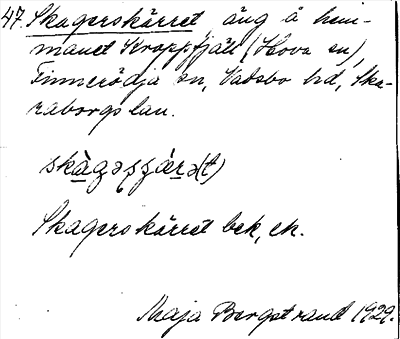 47. Skagerskärret äng å hem-
manet Kroppfjäll (Hova sn),
Finnerödja sn, Vadsbo hd, Ska-
raborgs län.
Skagerskärret bek, ek.
Maja Bergstrand 1929.